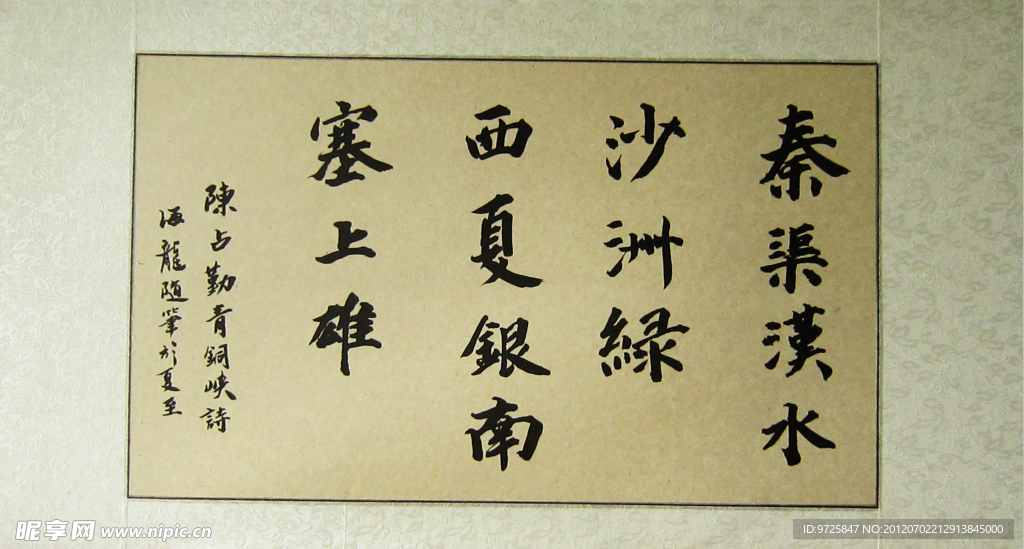 秦渠漢水
沙洲綠
西夏銀南
塞上雄
陳占勤青銅峽詩
海龍随筆於夏至
昵享网 www.nipic.cn
ID:9725847 NO:20120702212913845000